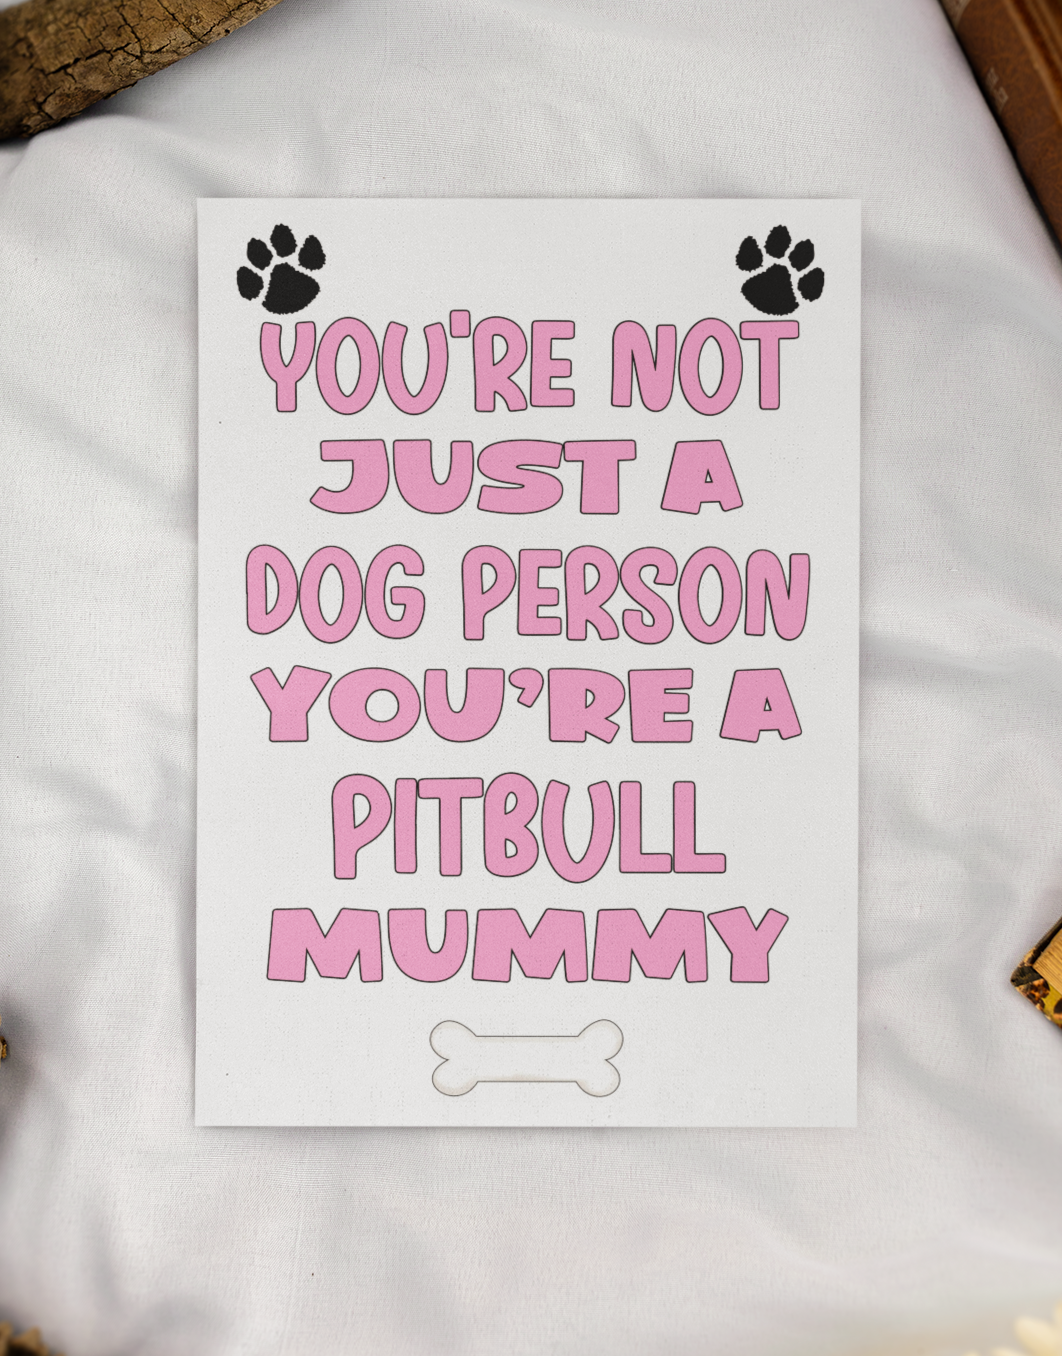 YOU'RE NOT
JUST A
DOG PERSON
YOU’RE A
PITBULL
MUMMY